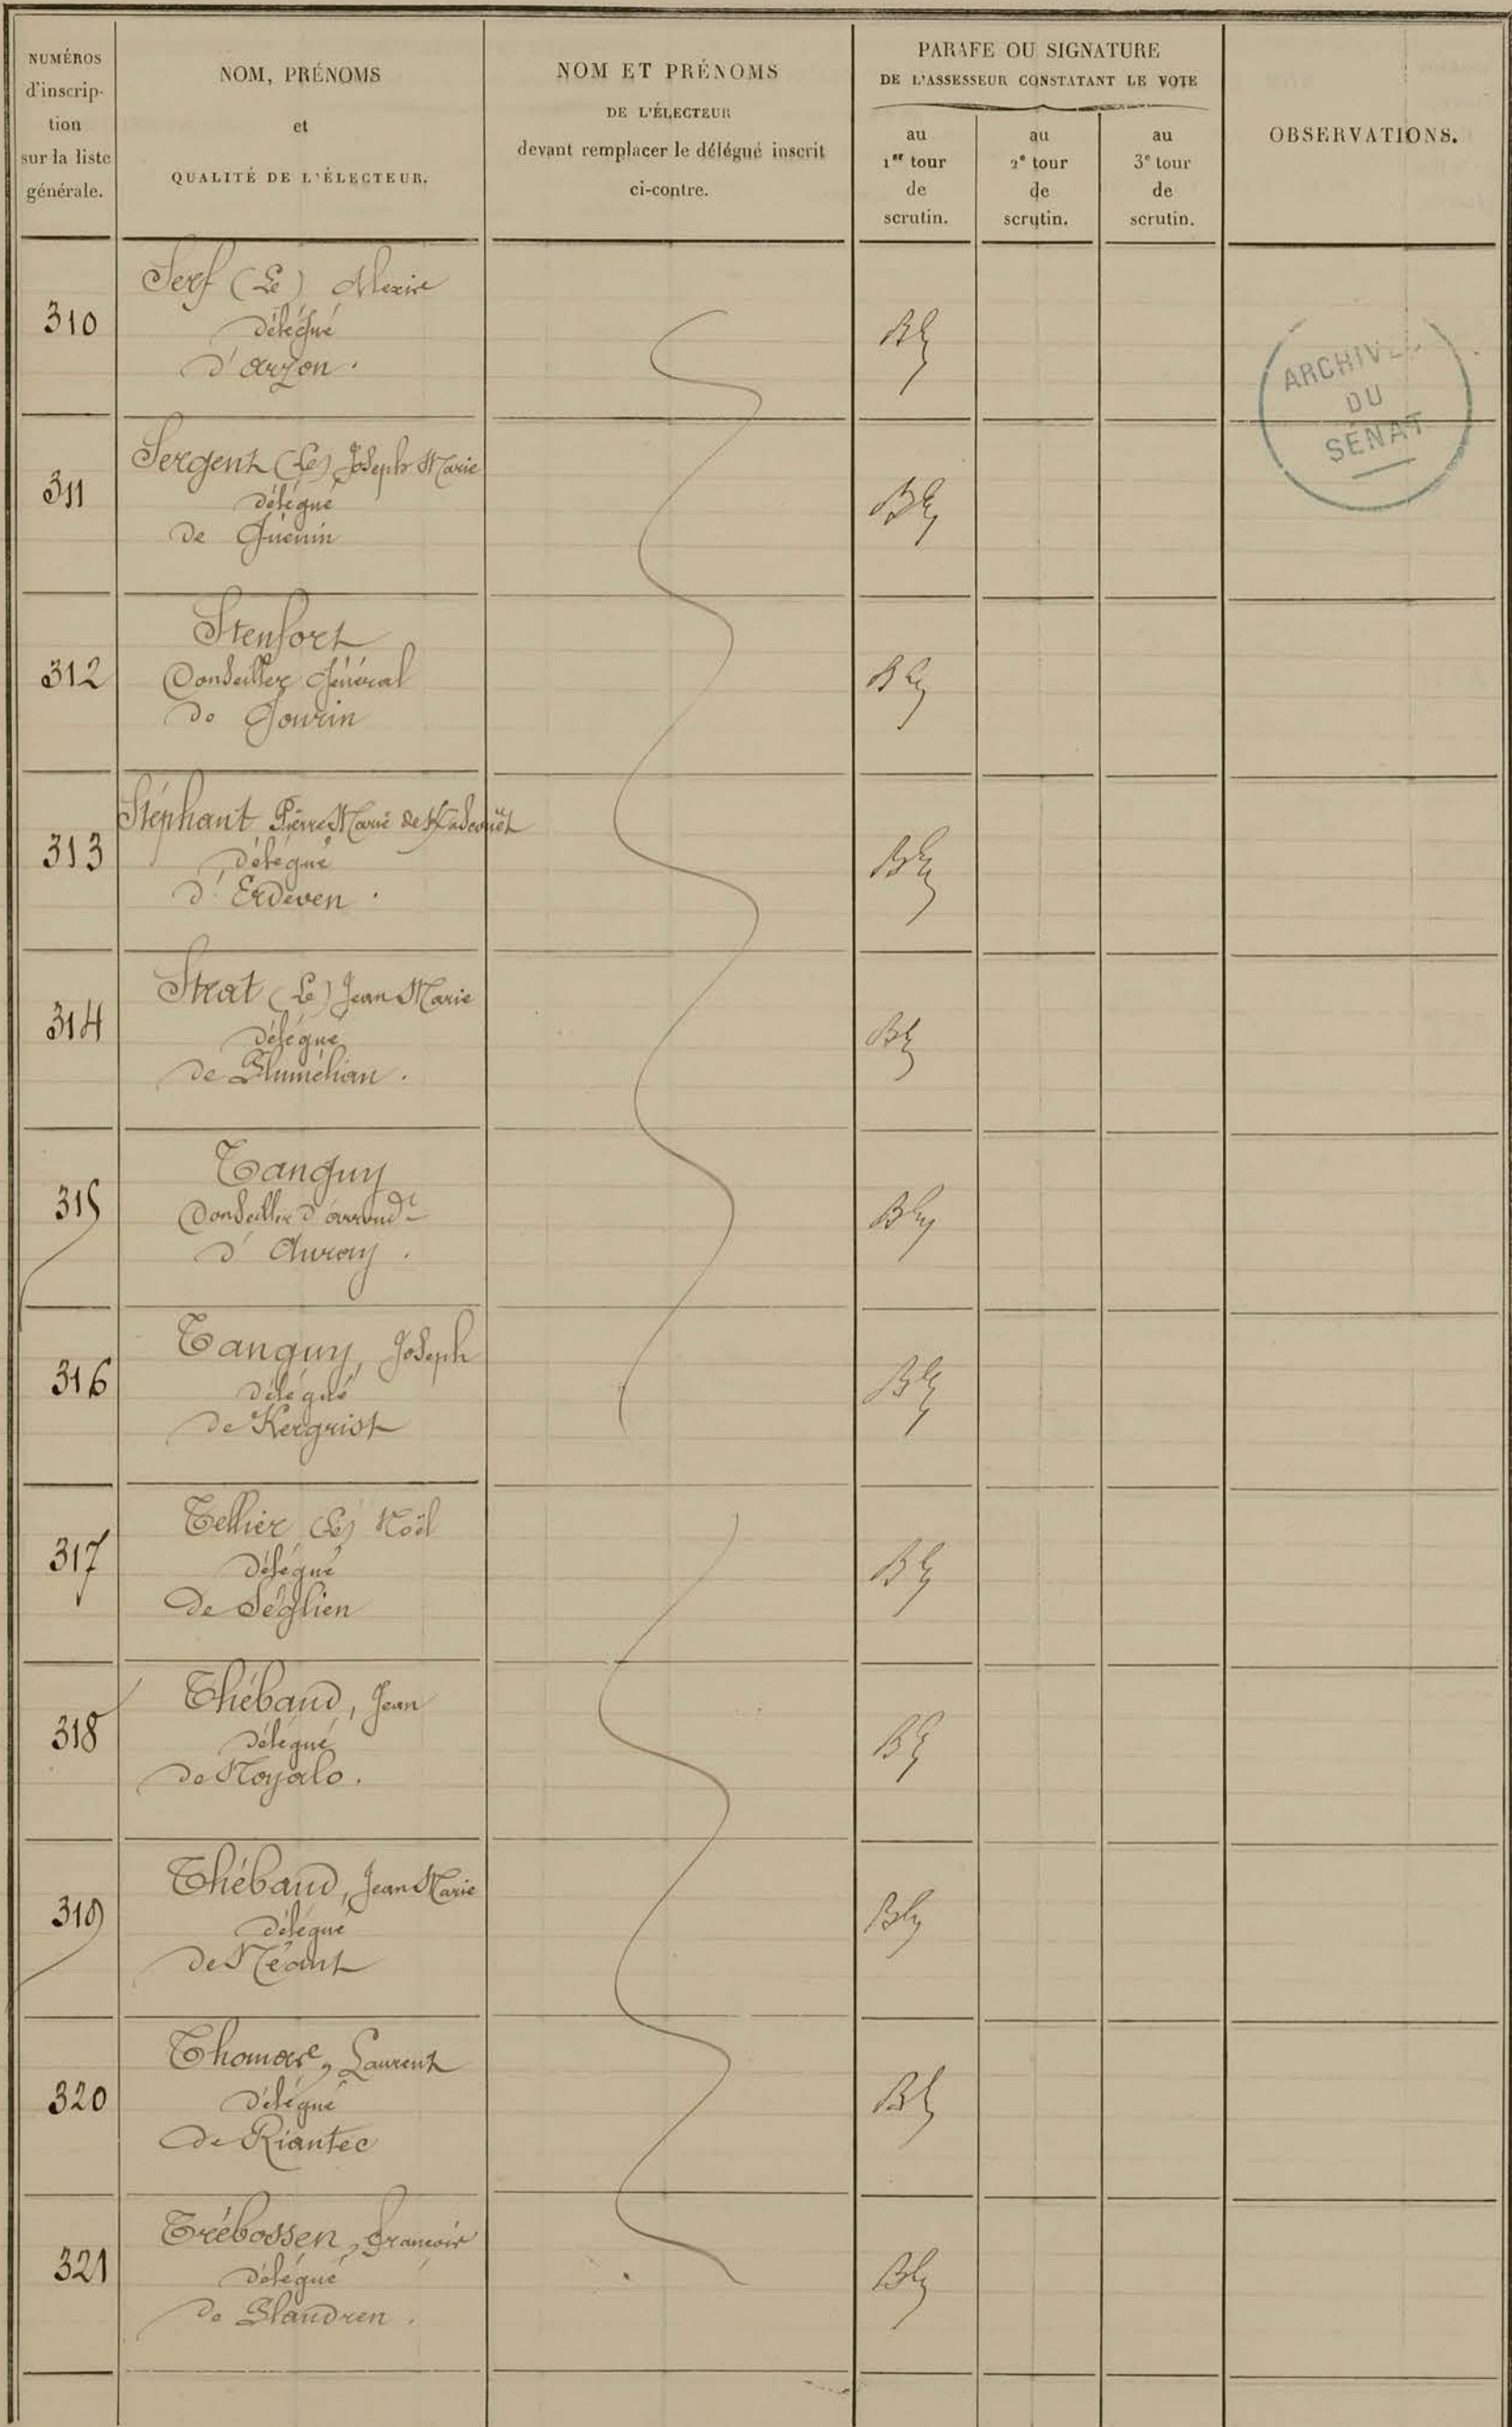 NUMÉROS
d'inscrip-
tion
sur la liste
générale.
NOM, PRÉNOMS
et
QUALITÉ DE L'ÉLECTEUR.
NOM ET PRÉNOMS
DE L'ÉLECTEUR
devant remplacer le délégué inscrit
ci-contre.
PARAFE OU SIGNATURE
DE L'ASSESSEUR CONSTATANT LE VOTE
au
1er tour
de
scrutin.
au
2e tour
de
scrutin.
au
3e tour
de
scrutin.
OBSERVATIONS.
310
Serf (Le) Alexis
délégué
d'arzon.
ARCHIVES
DU
SÉNAT
311
Sergent (Le) Joseph Marie
délégué
de Guénin
312
Stenfort
Conseiller Général
de Gourin
313
Stéphant Pierre Marie de
délégué
d'Erdeven.
314
Strat (Le) Jean Marie
délégué
de Plumélian.
315
Tanguy
Conseiller d'arrondt
d'Auray.
316
Tanguy, Joseph
délégué
de Kergrist
317
Tellier (Le) Noël
délégué
de Séglien
318
Thébaud, Jean
délégué
de Noyalo.
319
Thébaud, Jean Marie
délégué
de Néant
320
Laurent
délégué
de Riantec
321
Trébossen, François
délégué
de Plaudren.